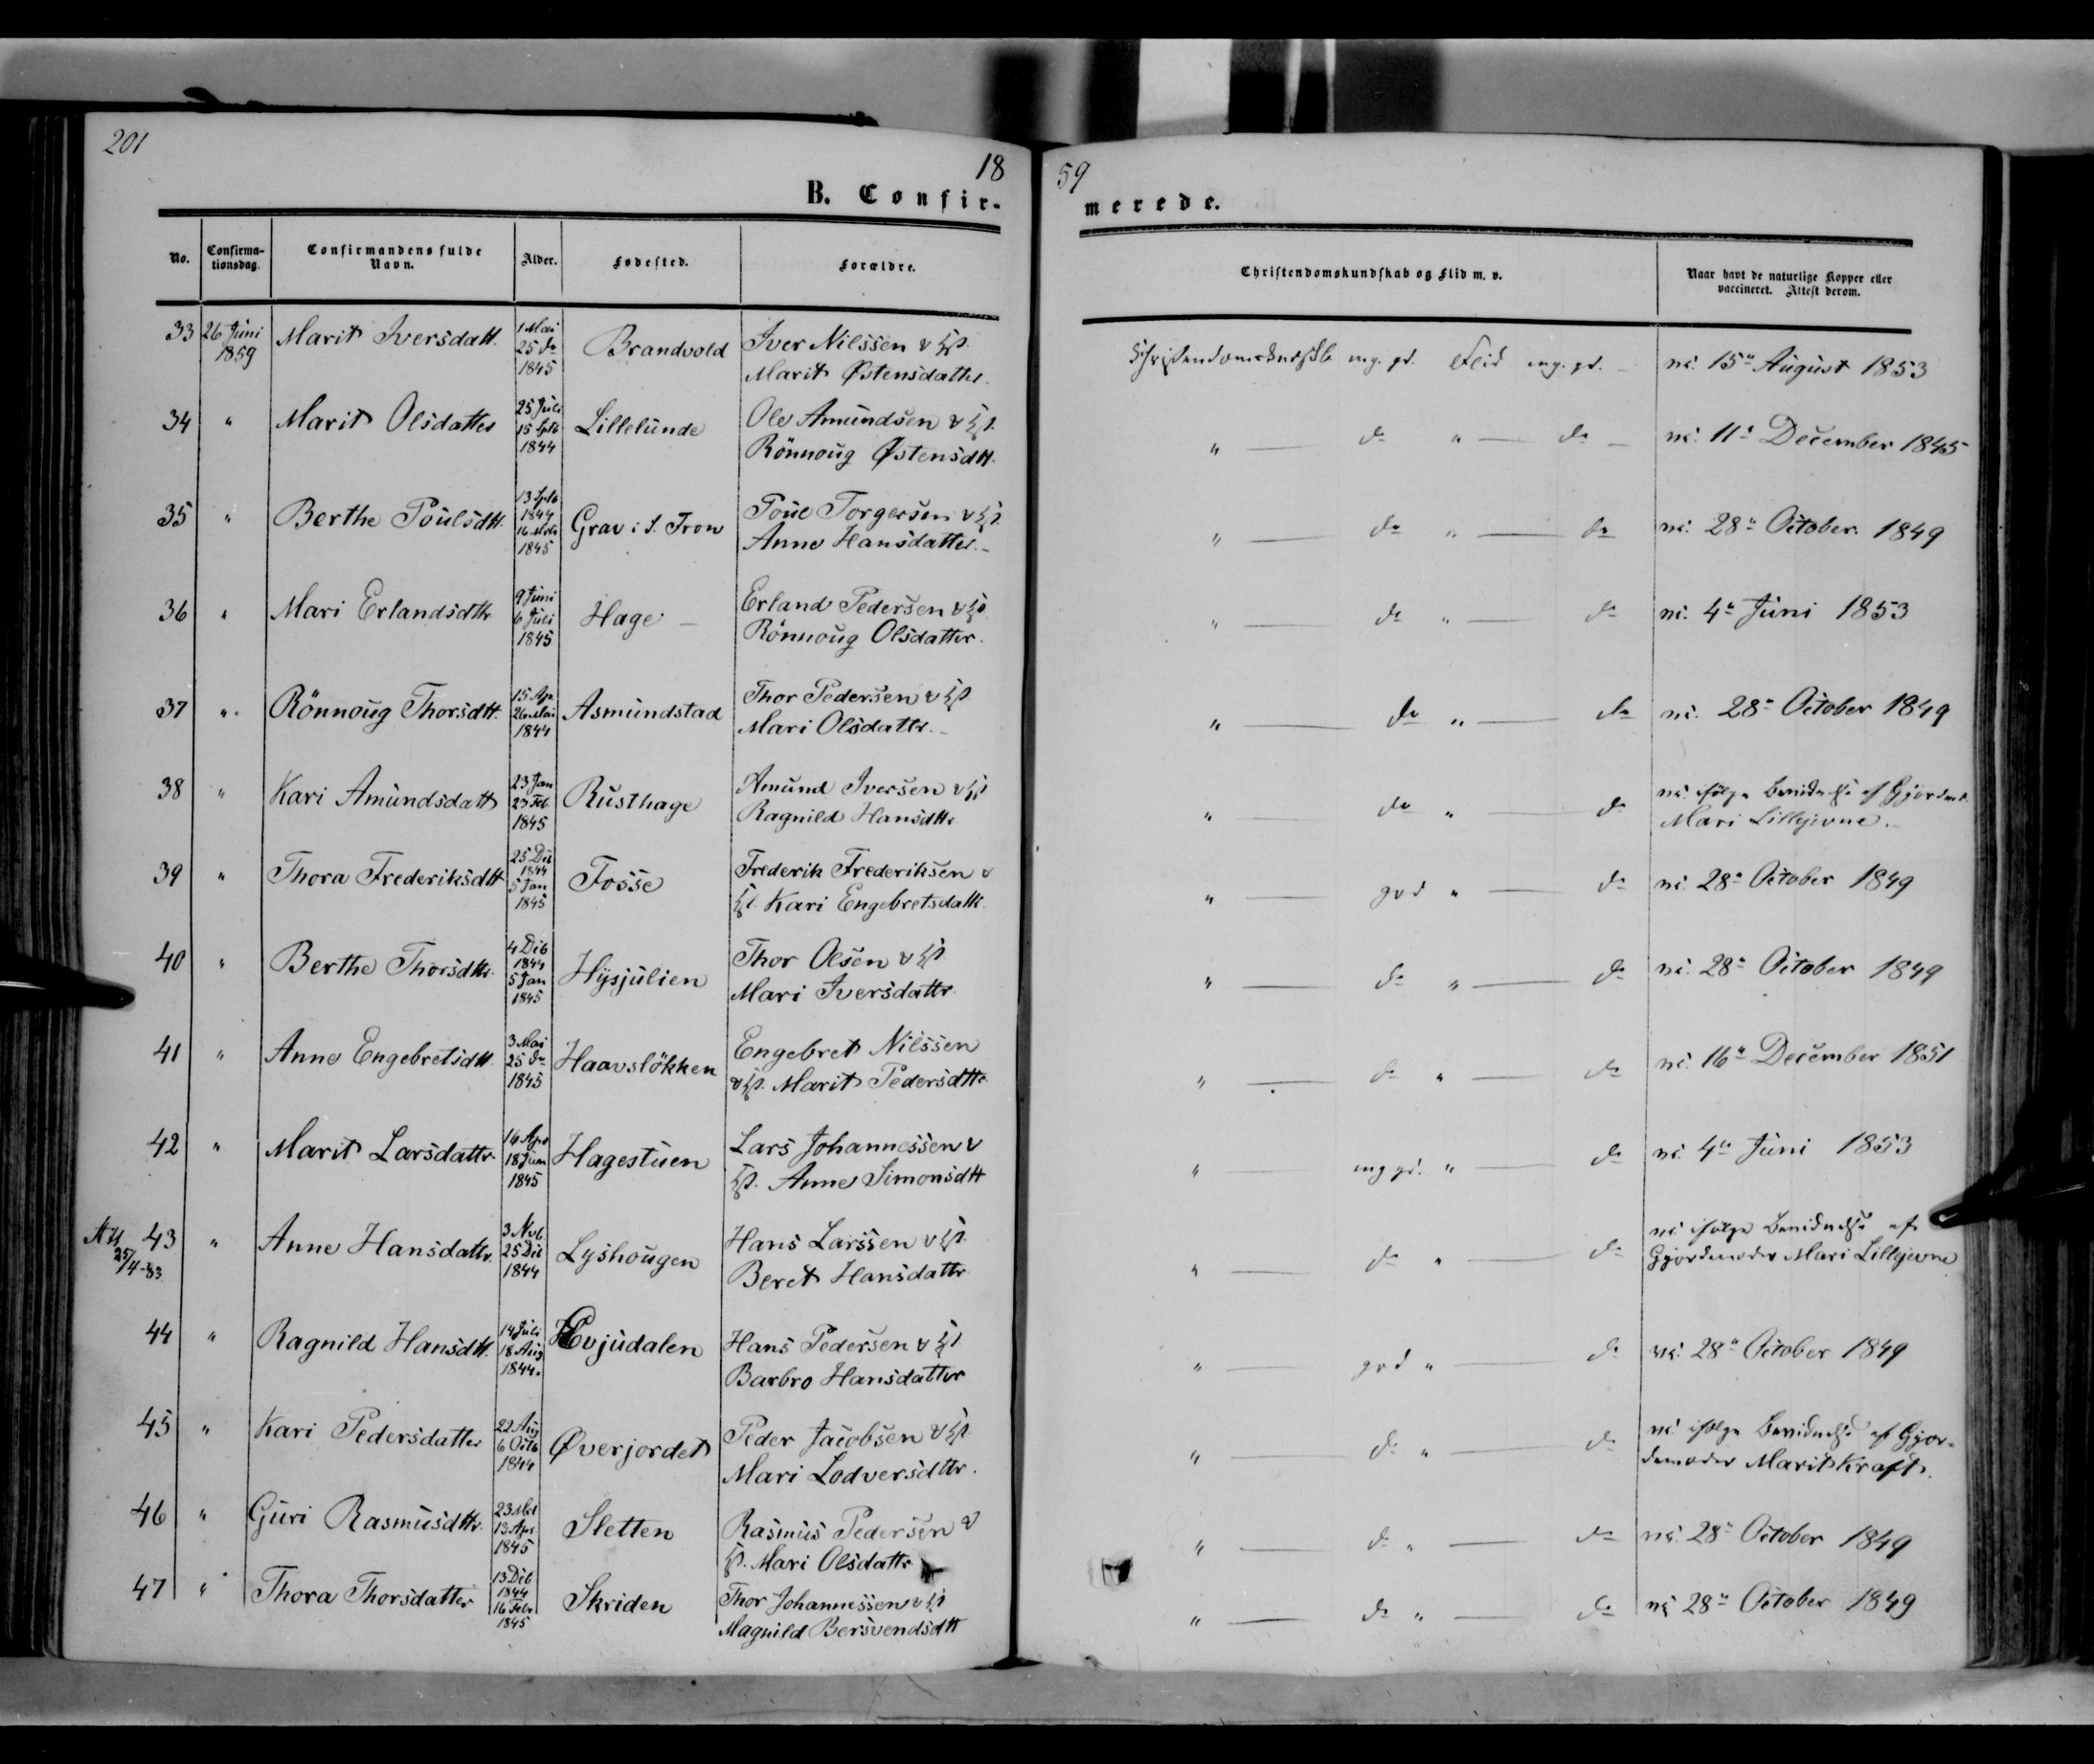 201
18
59
B. Confir-
merede.
No.
Confirma-
tionsdag.
Confirmandens fulde
Navn.
Alder.
Fødested.
Forældre.
Christendomskundskab og Flid m. v.
Naar havt de naturlige Kopper eller
vaccineret. Attest derom.
33 26 Juni 1859 Marit Iversdatt. 1 Mai 25 do 1845 Brandvold Iver Nilssen & H.
Marit Østensdatter. Christendomskundskb mg. gd. Flid mg. gd. - vc. 15de August 1853
34 " Marit Olsdatter 25 Juli 15 Sptb 1844 Lillelunde Ole Amundsen &
Rönnoug Østensdtt. " do " do - vc. 11te December 1845
35 " Berthe Poulsdtt. 13 Sptb 1844 1845 Grav i S. Fron Poul Torgersen &
Anne Hansdatter. - " do " do vc. 28de October. 1849
36 " Mari Erlandsdttr 9 Juni 6 Juli 1845 Hage - Erland Pedersen &
Rönnoug Olsdatter. " do " do vc. 4de Juni 1853
37 " Rönnoug Thorsdtt. 15 Ap 26 Mai 1844 Asmundstad Thor Pedersen &
Mari Olsdattr. - " do " do vc. 28de October 1849
38 " Kari Amundsdatt 23 Jan 23 Feb. 1845 Rusthage Amund Iversen &
Ragnild Hansdttr " do " do vc. ifølge Bevidnelse af Gjordem.
Mari Lillejevne.
39 " Thora Frederiksdtt 25 Dec 1844 5 Jan 1845 Fosse Frederik Frederiksen &
Kari Engebretsdattr. " god " do vc. 28de October 1849
40 " Berthe Thorsdttr. 4 Deb 1844 5 Jan 1845 Hysjulien Thor Olsen &
Mari Iversdattr. " do " do vc. 28de October 1849
41 " Anne Engebretsdtt. 3 Mai 25 do 1845 Haavslökken Engebret Nilssen
& Marit Pedersdttr " do " do vc. 16de December 1851
42 " Marit Larsdattr. 18 Jun 1845 Hagestuen Lars Johannessen &
Anne Simonsdtt " mg gd. " do vc. 4de Juni 1853
Att
25/4-83.
43 " Anne Hansdattr. 3 Nvb 25 Dec 1844 Lyshougen Hans Larssen &
Beret Hansdattr " do " do vc ifølge Bevidnelse af
Gjordemoder Mari Lillejevne
44 " Ragnild Hansdtt. 14 Juli 18 Aug 1844. Evjudalen Hans Pedersen &
Barbro Hansdatter " god " do vc. 28de October 1849
45 " Kari Pedersdatter 22 Aug 6 Octb 1844 Øverjordet Peder Jacobsen &
Mari Lodversdttr. " do " do vc ifølge Bevidnelse af Gjor-
demoder Marit Kraft.
46 " Guri Rasmusdttr. 23 13 Apr 1845 Sletten Rasmus Pedersen &
Mari Olsdattr " do " do vc. 28de October 1849
47 " Thora Thorsdatter 13 Deb 1844 16 Febr 1845 Skriden Thor Johannessen &
Magnild Bersvendsdtt " do " do vc 28de October 1849